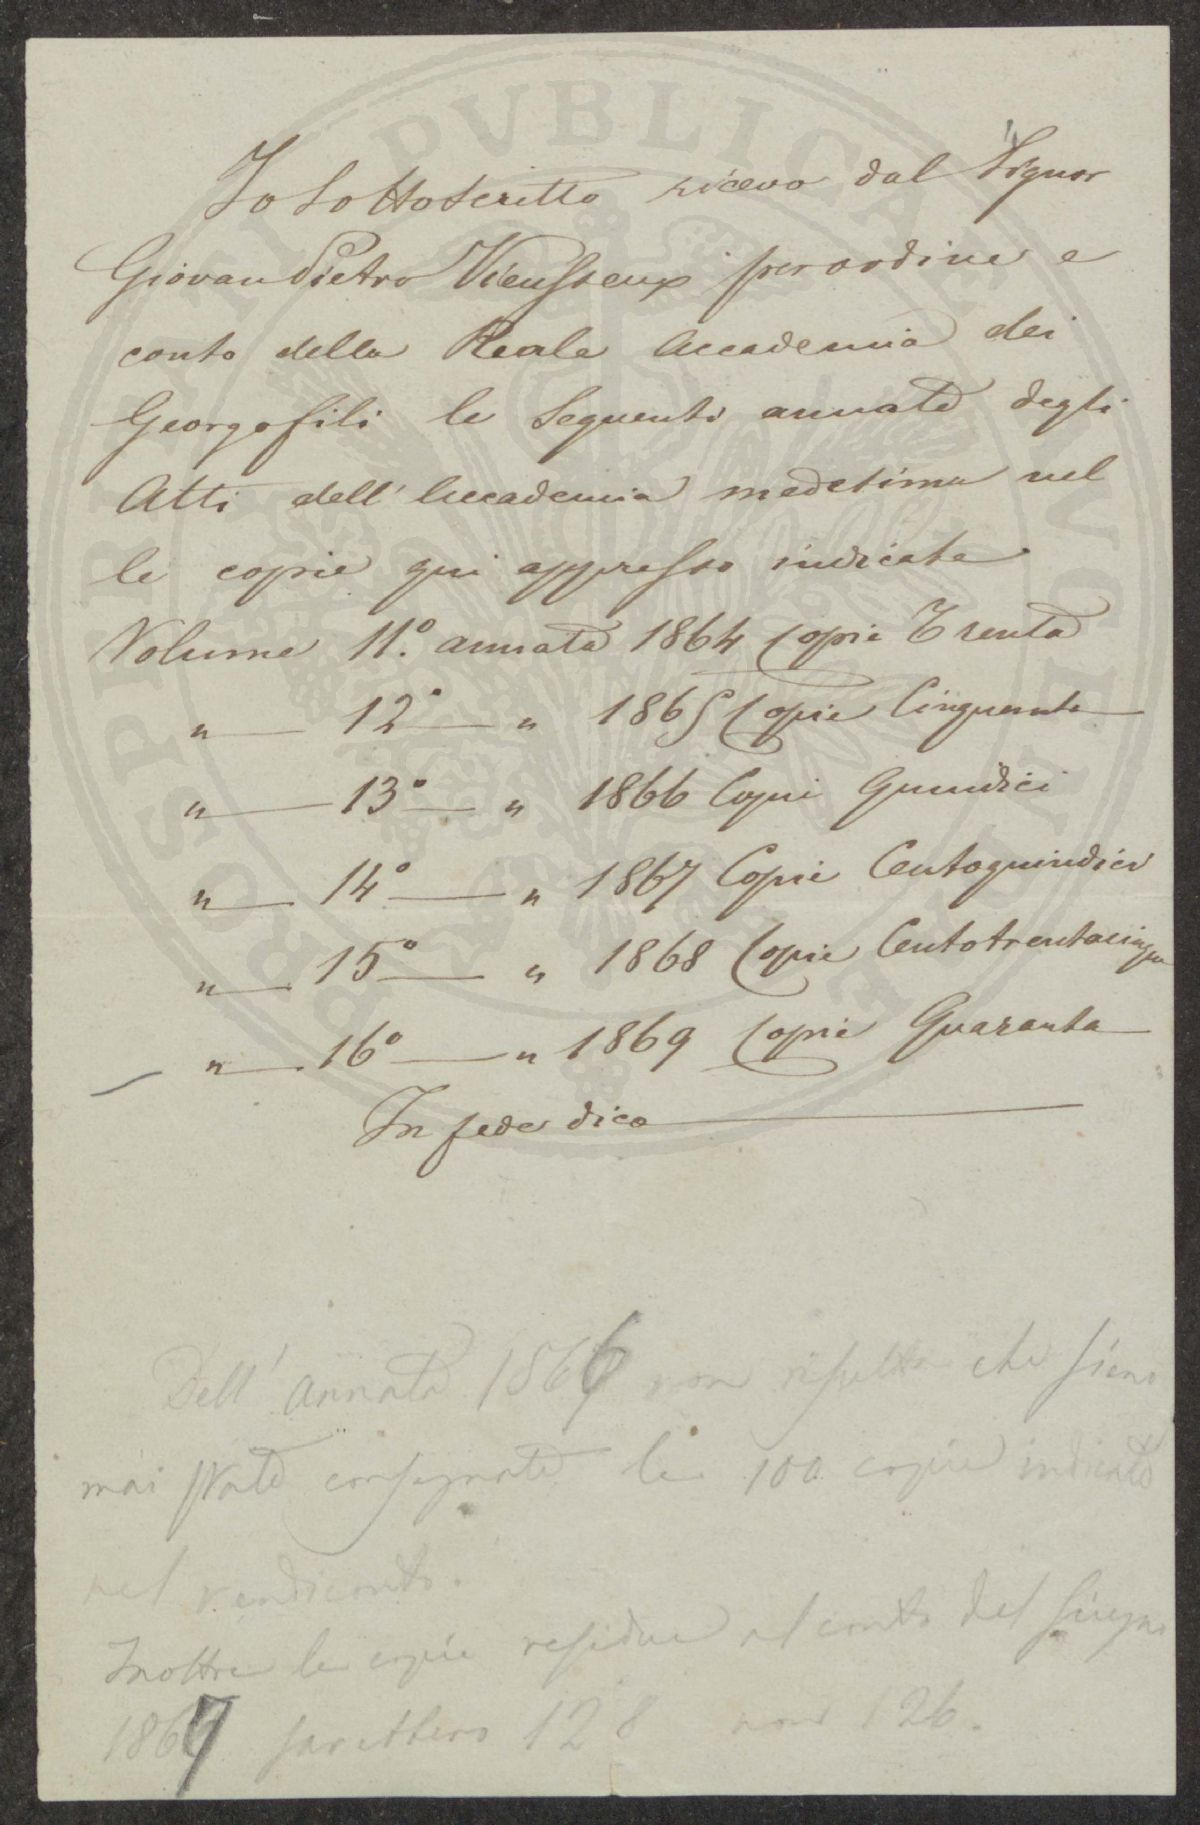 Io Sottoscritto ricevo dal Signor
Giovan Pietro Vieusseux per ordine e
conto della Reale Accademia dei
Georgofili le Seguenti annate degli
Atti dell' Accademia medesima nel
le copie qui appresso indicate
Volume 11.° annata 1864 Copie Trenta
" — 12° — " 1865 Copie Cinquanta —
" — 13° — " 1866 Copie Quindici
" — 14° — " 1867 Copie Centoquindici
" — 15° — " 1868 Copie Centotrentacinque
" — 16° — " 1869 Copie Quaranta —
In fede dico —
Dell' annata 1866 non risulta che sieno
mai state consegnate le 100 copie indicate
nel rendiconto.
Inoltre le copie residue al conto del Giugno
1867 sarebbero 128 non 126.
PROSPERITATI PUBLICAE AUGENDAE